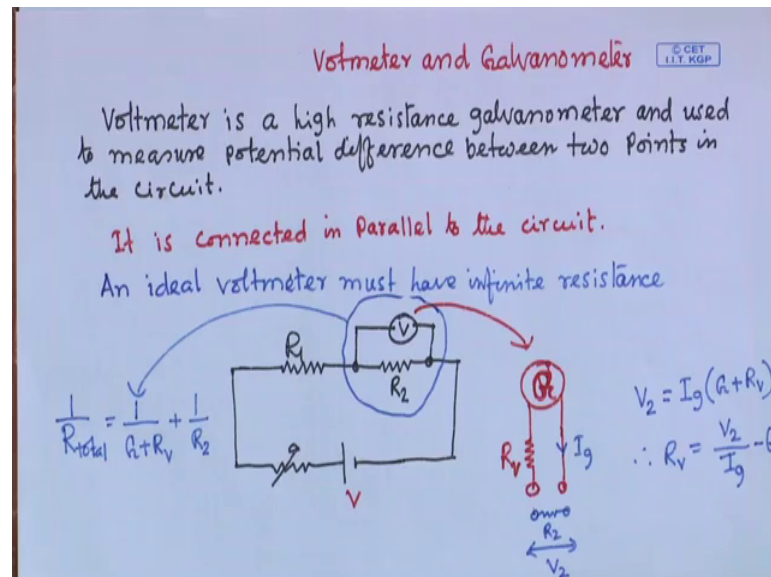 Votmeter and Galvanometer
© CET
I.I.T. KGP
Voltmeter is a high resistance galvanometer and used
to measure potential difference between two points in
the circuit.
It is connected in Parallel to the circuit.
An ideal voltmeter must have infinite resistance
V
R1
R2
1/Rtotal = 1/G+Rv + 1/R2
V
G
Rv
Ig
R2
V2
V2 = Ig(G+Rv)
∴ Rv = V2/Ig - G